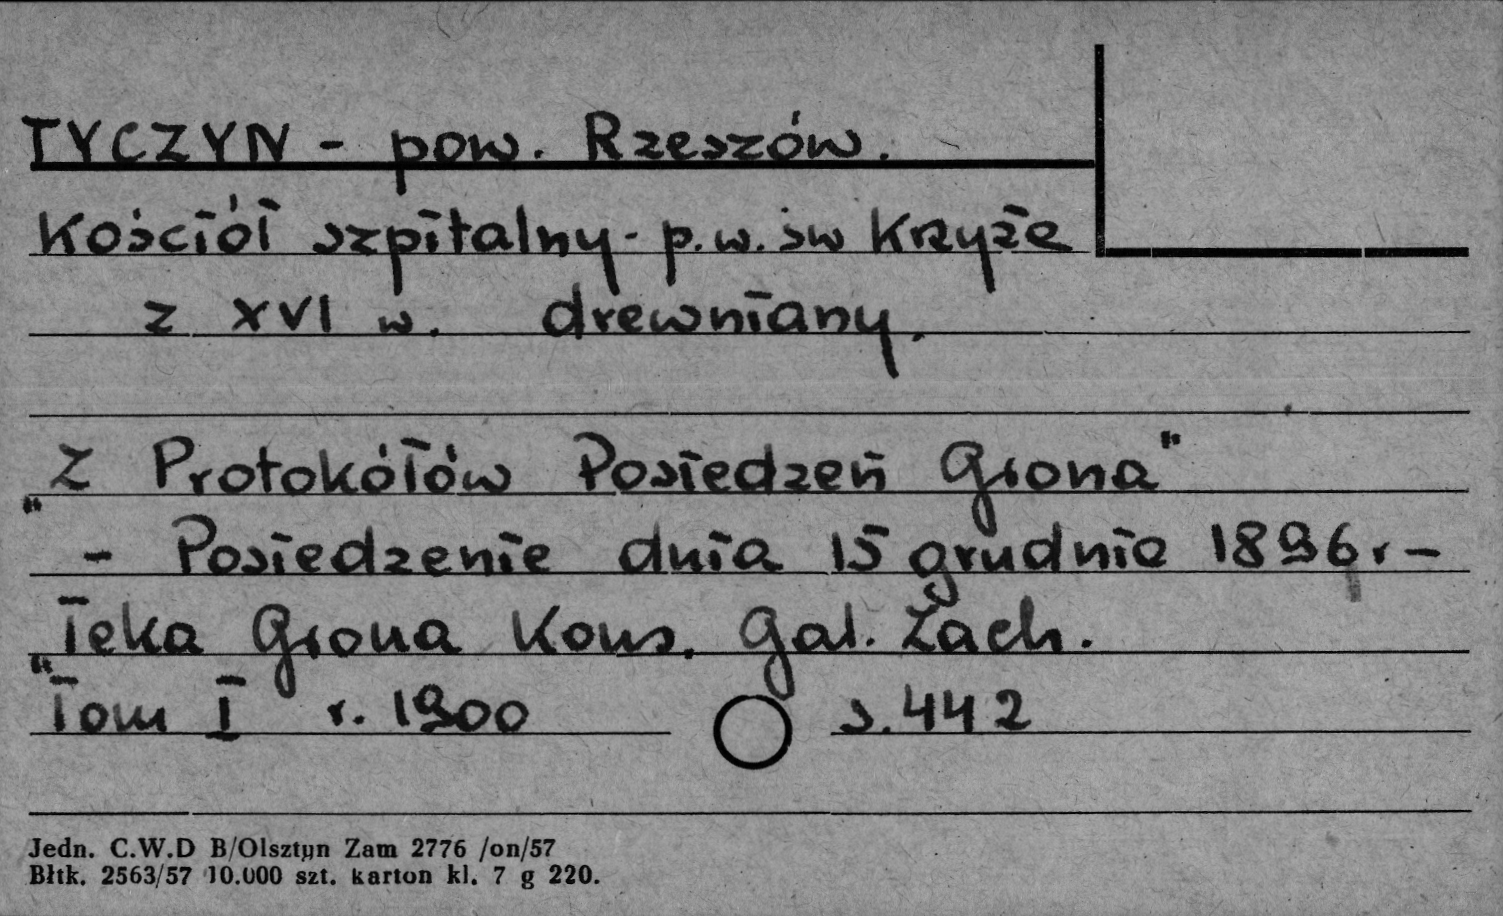 TYCZYN - pow. Rzeszów.
Kościół szpitalny - p.w. św Krzyża
z XVI w. drewniany.
„Z Protokółów Posiedzeń Grona"
- Posiedzenie dnia 15 grudnia 1896 r -
„Teka Grona Kons. Gal. Zach.
Tom I r. 1900 s. 442
Jedn. C.W.D B/Olsztyn Zam 2776 /on/57
Błtk. 2563/57 10.000 szt. karton kl. 7 g 220.